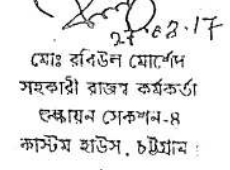 27.02.17
মোঃ রবিউল মোর্শেদ
সহকারী রাজস্ব কর্মকর্তা
শুল্কায়ন সেকশন-৪
কাস্টম হাউস, চট্টগ্রাম।